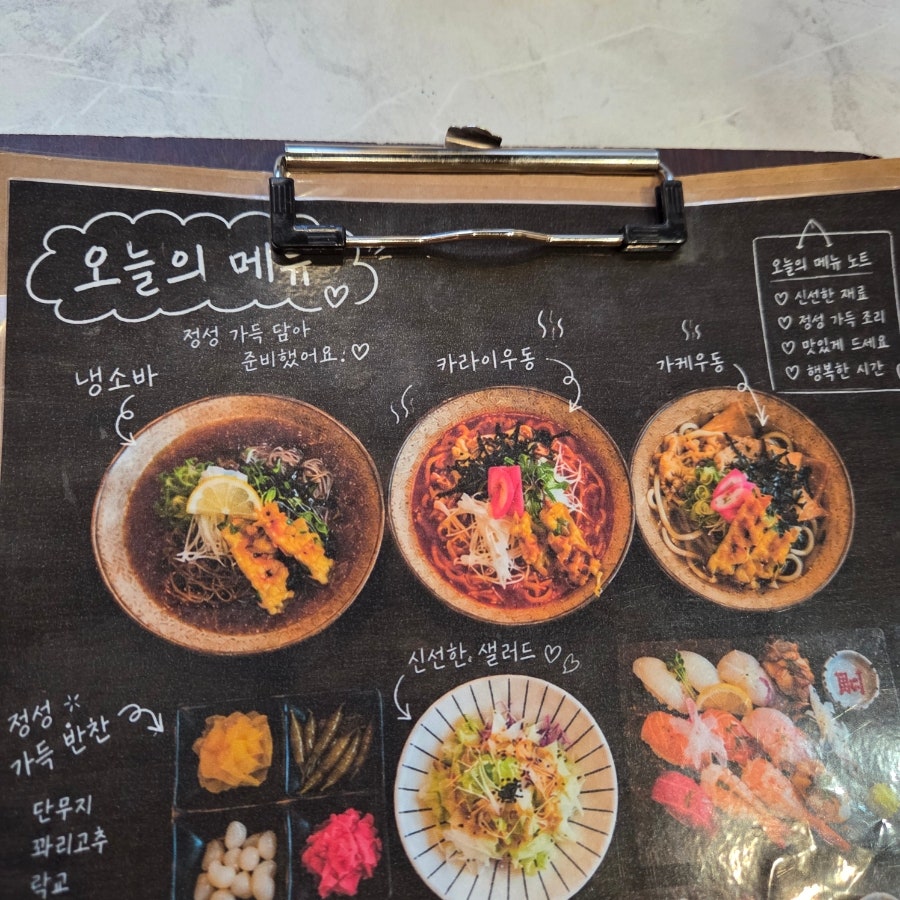 오늘의 메뉴
정성 가득 담아
준비했어요.
냉소바
카라이우동
가케우동
오늘의 메뉴 노트
신선한 재료
정성 가득 조리
맛있게 드세요
행복한 시간
정성
가득 반찬
단무지
꽈리고추
락교
신선한 샐러드